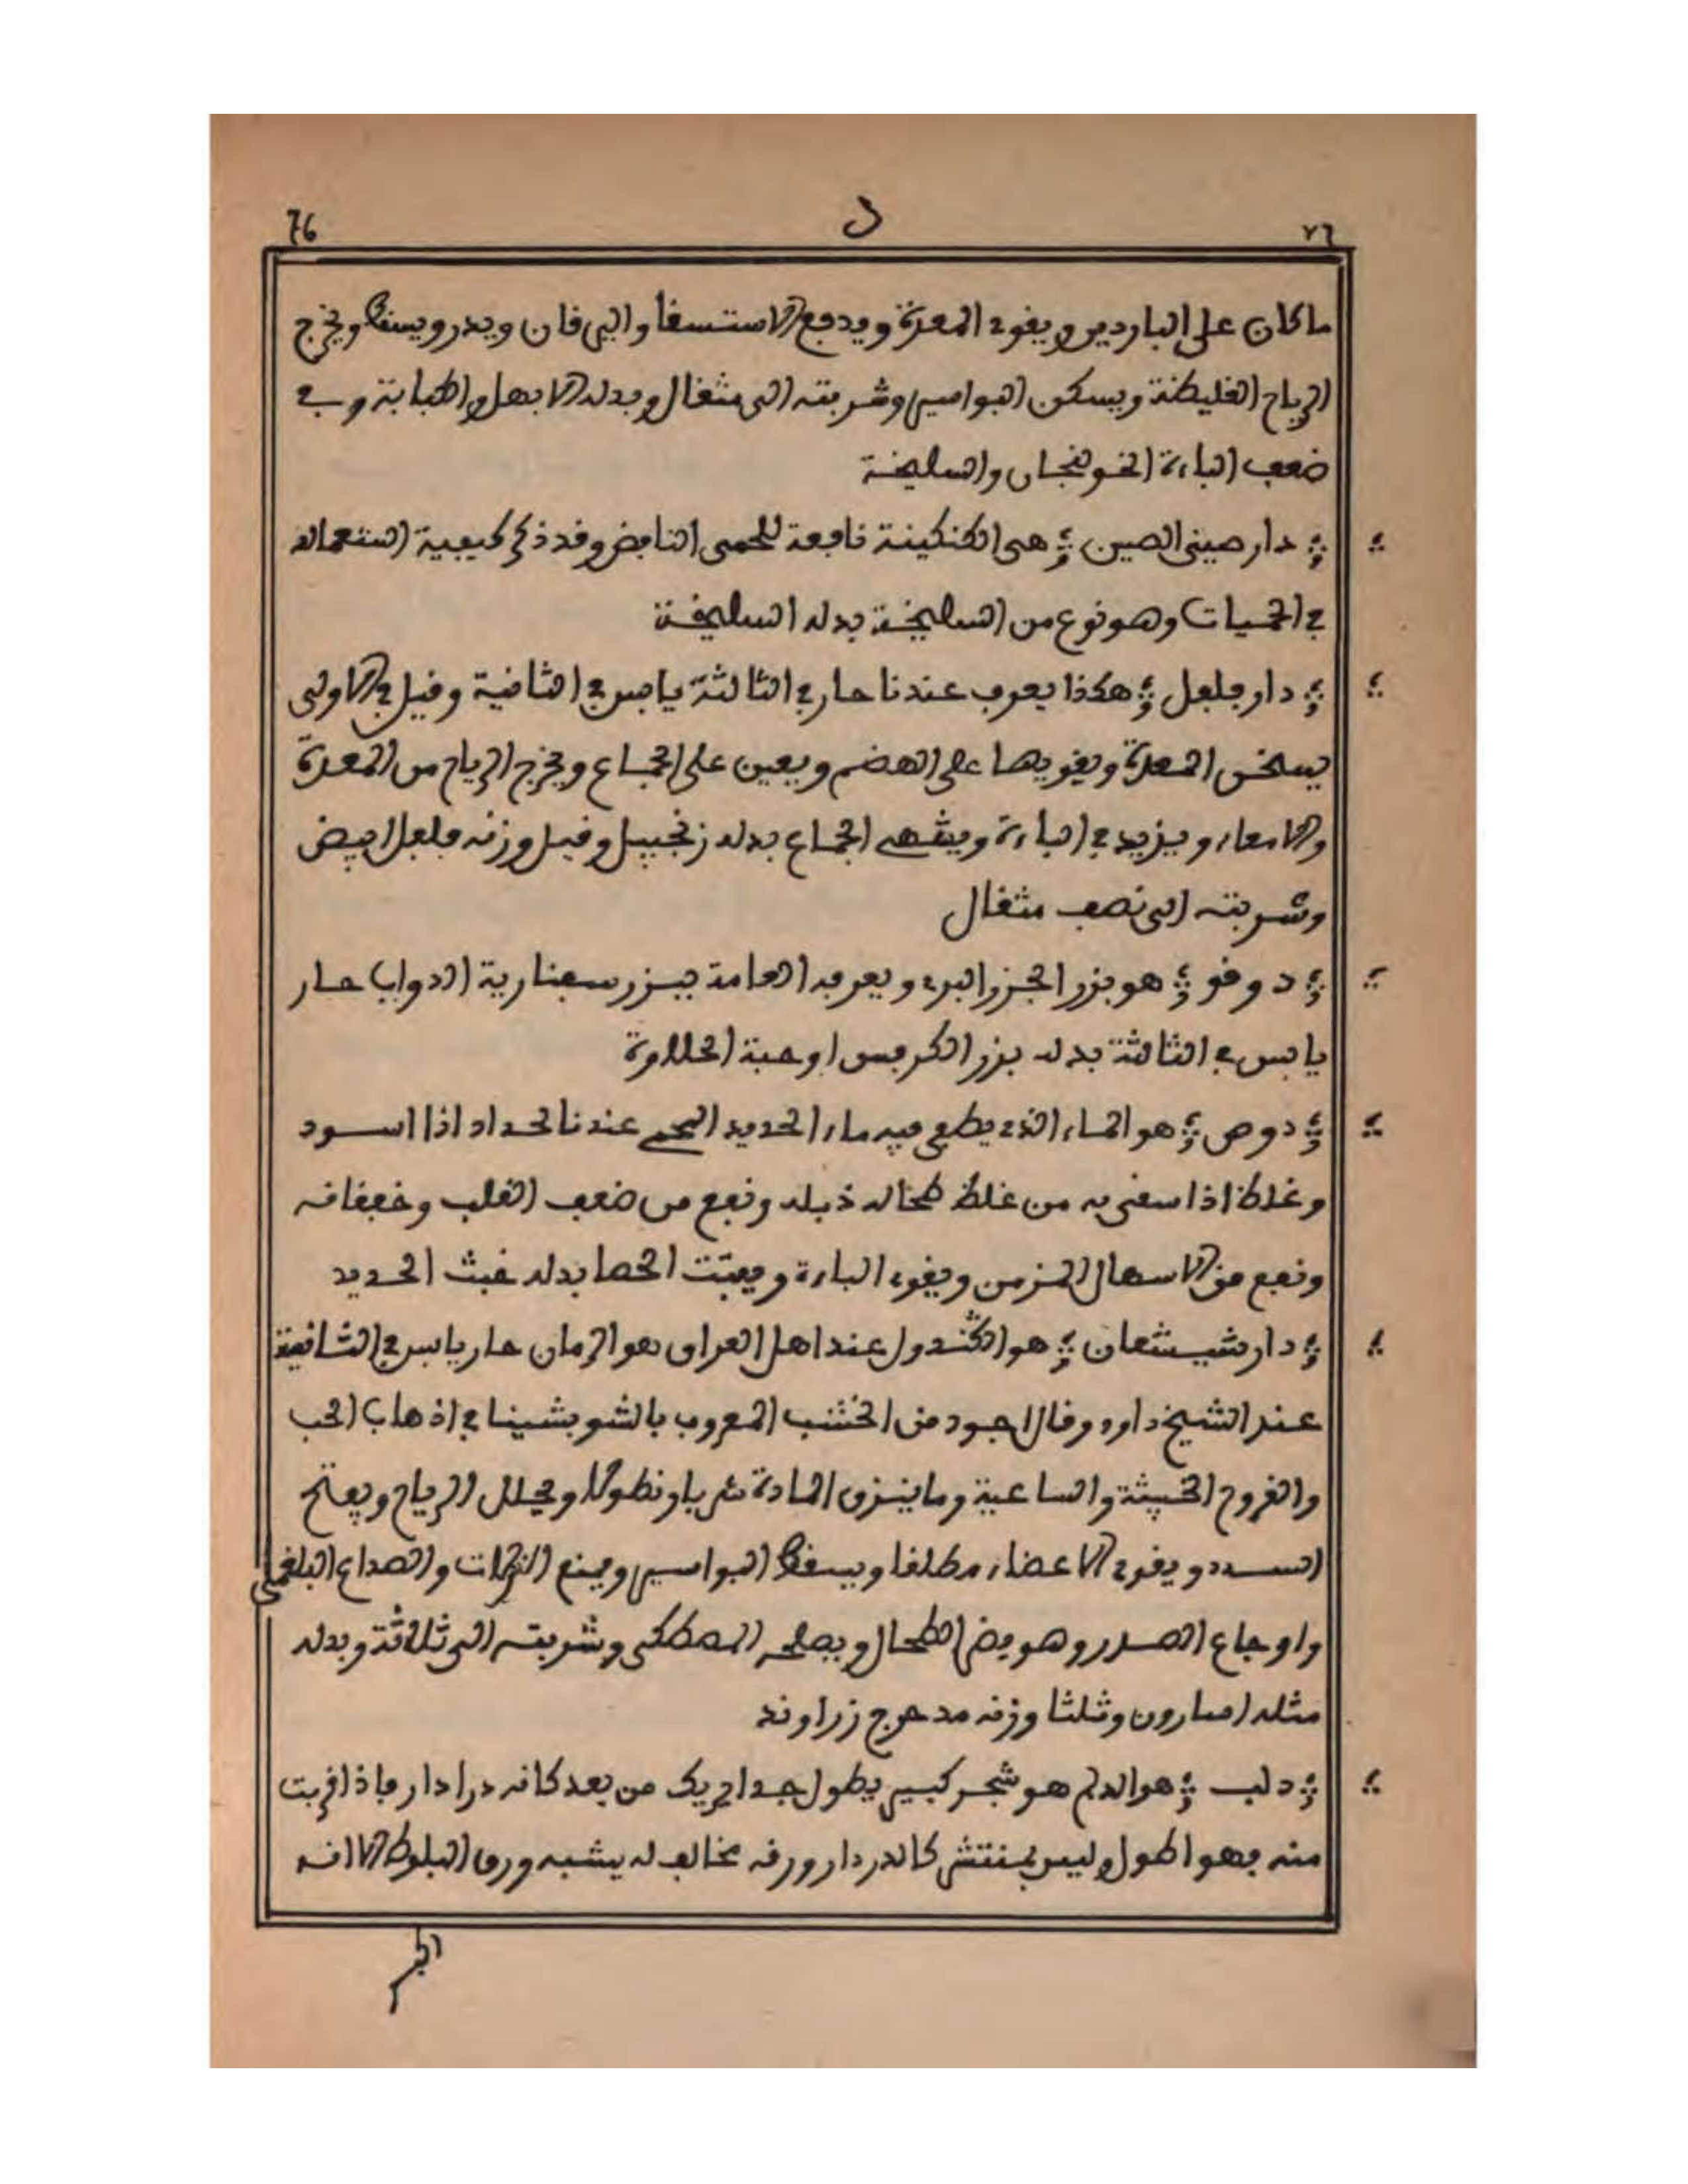 76 د ٧٦
ما كان على الباردين ويقوي المعدة ويدفع الاستسقا واليرقان ويدر ويسقط ويخرج
الرياح الغليظة ويسكن البواسير وشربته الى مثقال وبدله الابهل والكبابة وفي
ضعف الباءة الخولنجان والسليخة
دار صيني الصين هي الكنكينة نافعة للحمى النافض وقد ذكر كيفية استعماله
في الحميات وهو نوع من السليخة بدله السليخة
دار فلفل هكذا يعرف عندنا حار في الثالثة يابس في الثانية وقيل في الاولى
يسخن المعدة ويقويها على الهضم ويعين على الجماع ويخرج الرياح من المعدة
والامعاء ويزيد في الباءة ويشهي الجماع بدله زنجبيل وقيل وزنه فلفل ابيض
وشربته الى نصف مثقال
دوقو هو بزر الجزر البري ويعرفه العامة ببزر سفنارية الدواب حار
يابس في الثالثة بدله بزر الكرفس او حبة الحلاوة
دوص هو الماء الذي يطفى فيه ماء الحديد المحمي عندنا الحداد اذا اسود
وغلظ اذا سقي به من غلظ طحاله ذبله ونفع من ضعف القلب وخفقانه
ونفع من الاسهال المزمن ويقوي الباءة ويفتت الحصا بدله خبث الحديد
دار شيشعان هو الكندول عند اهل العراق هو الرمان حار يابس في الثانية
عند الشيخ داود وقال اجود من الخشب المعروف بالشوبشينا في اذهاب الحب
والقروح الخبيثة والساعية وما ينزف المادة شربا ونطولا ويحلل الرياح ويفتح
السدد ويقوي الاعضاء مطلقا ويسقط البواسير ويمنع النزلات والصداع البلغمي
واوجاع الصدر وهو يضر الطحال ويصلحه المصطكى وشربته الى ثلاثة وبدله
مثله اسارون وثلثا وزنه مدحرج زراوند
دلب هو الدلم هو شجر كبير يطول جدا يريك من بعد كانه دردار فاذا قربت
منه فهو اطول وليس بمنتش كالدردار ورقه مخالف له يشبه ورق البلوط الا انه